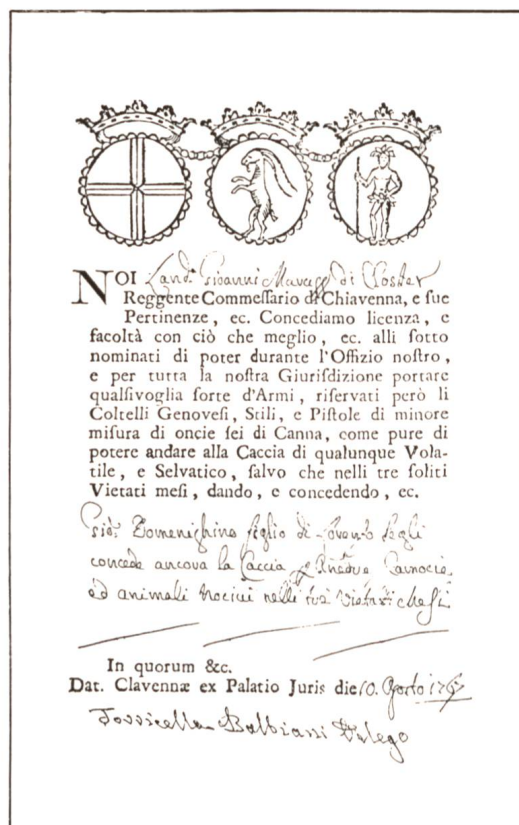 NOI Land. Gioanni di Closter
Reggente Commeſſario di Chiavenna, e ſue
Pertinenze, ec. Concediamo licenza, e
facoltà con ciò che meglio, ec. alli ſotto
nominati di poter durante l'Offizio noſtro,
e per tutta la noſtra Giuriſdizione portare
qualſivoglia ſorte d'Armi, riſervati però li
Coltelli Genoveſi, Stili, e Piſtole di minore
miſura di oncie ſei di Canna, come pure di
potere andare alla Caccia di qualunque Vola-
tile, e Selvatico, ſalvo che nelli tre ſoliti
Vietati meſi, dando, e concedendo, ec.
Domenighino figlio di
concede ancora la Caccia
ed animali nocivi nelli
In quorum &c.
Dat. Clavennæ ex Palatio Juris die 10. Agosto
Torricella Balbiani